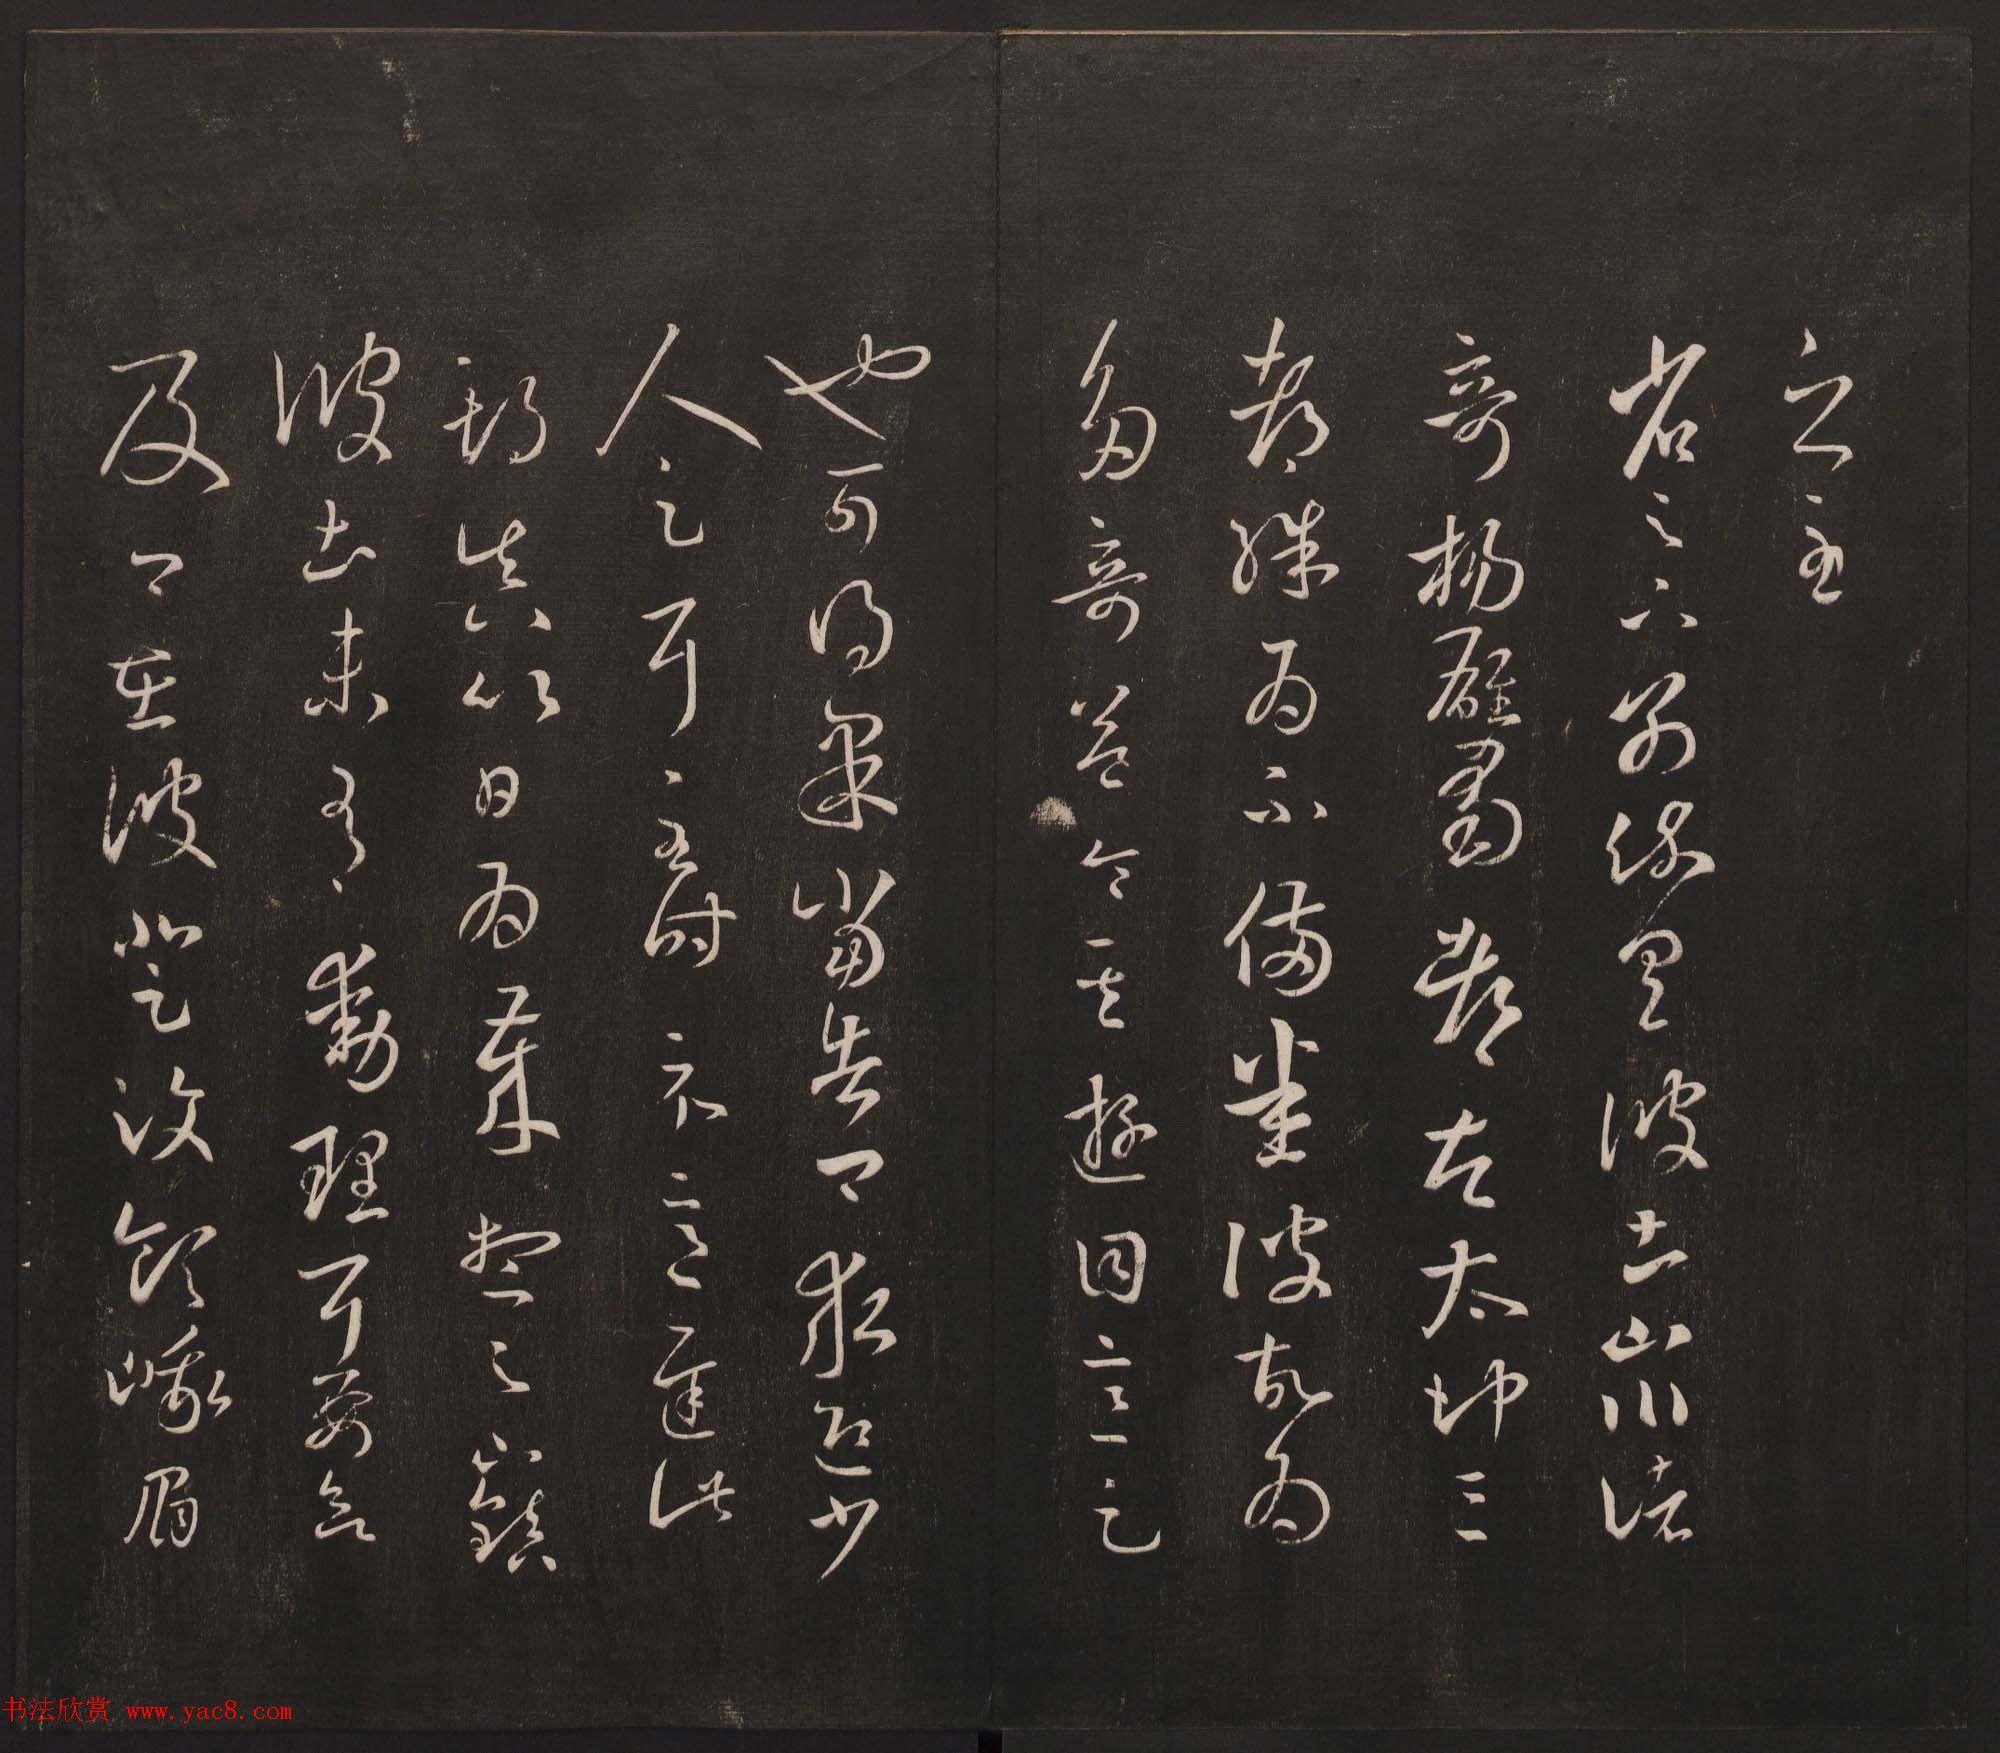 之至
省足下别疏具彼土山川诸
奇杨雄蜀都左太冲三
都殊为不备悉彼故为
多奇益令其游目意足
也可得果当告卿求迎少
人足耳至时示意迟此
期真以日为岁想足下镇
彼土未有动理耳要欲
及卿在彼登汶领峨眉
书法欣赏 www.yac8.com